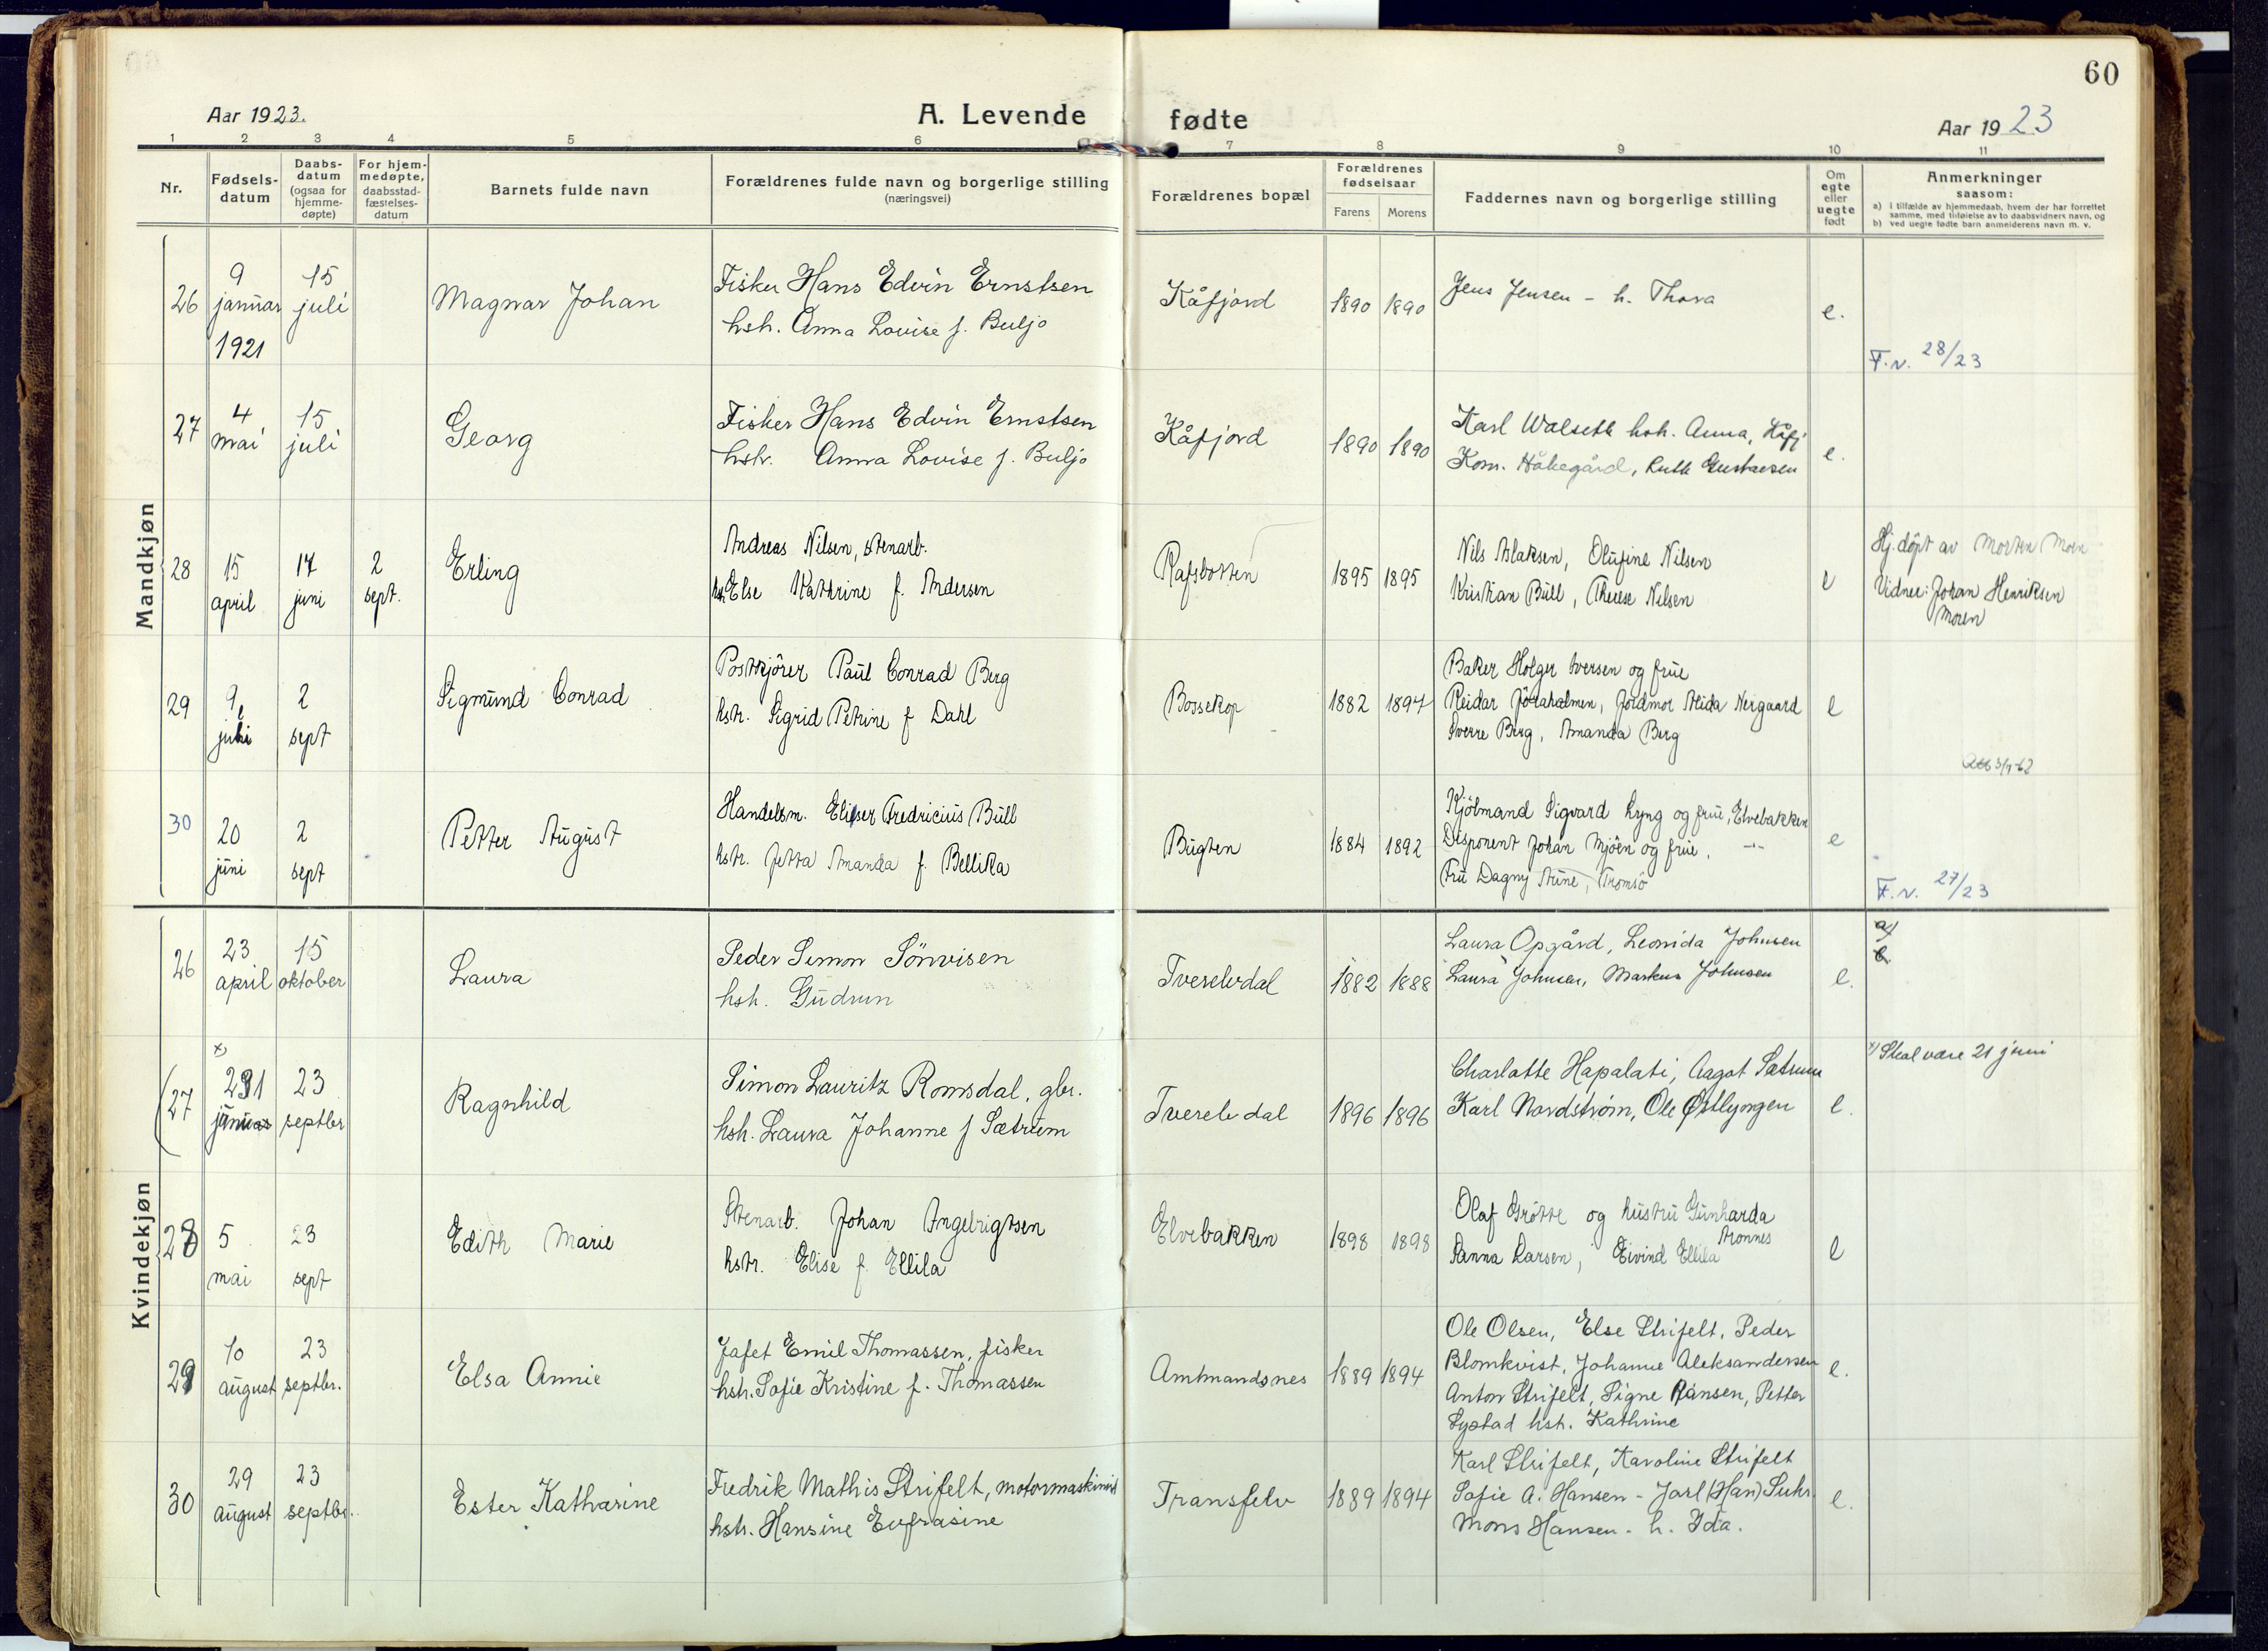 60
Aar 1923.
A. Levende fødte
Aar 1923
1 2 3 4 5 6 7 8 9 10 11
Nr.
Fødsels-
datum
Daabs-
datum
(ogsaa for
hjemme-
døpte)
For hjem-
medøpte,
daabsstad-
fæstelses-
datum
Barnets fulde navn
Forældrenes fulde navn og borgerlige stilling
(næringsvei)
Forældrenes bopæl
Forældrenes
fødselsaar
Farens Morens
Faddernes navn og borgerlige stilling
Om
egte
eller
uegte
født
Anmerkninger
saasom:
a) i tilfælde av hjemmedaab, hvem der har forrettet
samme, med tilføielse av to daabsvidners navn, og
b) ved uegte fødte barn anmelderens navn m. v.
Mandkjøn
26
9
januar
1921
15
juli
Magnar Johan
Fisker Hans Edvin Ernstsen
hsh. Anna Lovise f. Buljo
Kåfjord
1890 1890
Jens Jensen - h. Thora
e.
F.v. 28/23
27
4
mai
15
juli
Georg
Fisker Hans Edvin Ernstsen
hstr. Anna Lovise f. Buljo
Kåfjord
1890 1890
Karl Walseth hsh. Anna, Kåfj
Kom. Håkegård, Ruth Gustavsen
e.
28
15
april
17
juni
2
sept.
Erling
Andreas Nilsen, stenarb.
Else Kathrine f. Andersen
Rafsbotten
1895 1895
Nils Aslaksen, Olufine Nilsen
Kristian Bull, Therese Nilsen
e
Hj.døpt av Morten Moen
Vidner: Johan Henriksen
Moren
29
9
juli
2
sept
Sigmund Conrad
Postkjører Paul Conrad Berg
hstr. Sigrid Petrine f Dahl
Bossekop
1882 1897
Baker Holger Iversen og frue
Reidar Jöraholmen, Jordmor Alida Nergaard
Sverre Berg, Amanda Berg
e
30
20
juni
2
sept
Petter August
Handelsm. Elieser Fredricius Bull
hstr. Jetta Amanda f. Bellika
Bugten
1884 1892
Kjøbmand Sigvard Lyng og frue, Elvebakken
Disponent Johan Mjøen og frue, -"-
Fru Dagny Aune, Tromsø
e
F.v. 27/23
Kvindekjøn
26
23
april
15
oktober
Laura
Peder Simon Sönvisen
hsh. Gudrun
Tverelvdal
1882 1888
Laura Opgård, Leonida Johnsen
Laura Johnsen, Markus Johnsen
e.
a)
27
x)
21
juni
23
septbr
Ragnhild
Simon Lauritz Romsdal, gbr.
hsh. Laura Johanne f Sætrum
Tverelvdal
1896 1896
Charlotte Hapalati, Aagot Sætrum
Karl Nordstrøm, Ole Østlyngen
e.
x) Skal være 21 juni
28
5
mai
23
sept
Edith Marie
Stenarb. Johan Ingebrigtsen
hstr. Elise f. Ellila
Elvebakken
1898 1898
Olaf Grøtte og hustru Gunharda
Aronnes
Sanna Larsen, Eivind Ellila
e
29
10
august
23
septbr.
Elsa Annie
Jafet Emil Thomassen, fisker
hstr. Sofie Kristine f. Thomassen
Amtmandsnes
1889 1894
Ole Olsen, Else Strifelt, Peder
Blomkvist, Johanne Aleksandersen
Anton Strifelt, Signe Hansen, Petter
Systad hst. Kathrine
e.
30
29
august
23
septbr.
Ester Katharine
Fredrik Mathis Strifelt, motormaskinist
hstr. Hansine Eufrasine
Transfelv
1889 1894
Karl Strifelt, Karoline Strifelt
Sofie A. Hansen - Jarl (Han) Suhr.
Mons Hansen - h. Ida.
e.